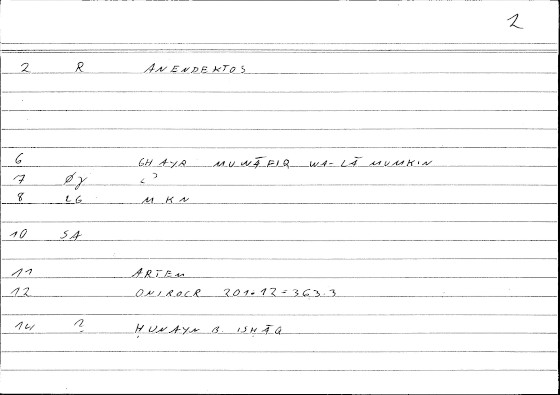 2
2 R ANENDEKTOS
6 GHAYR MUWĀFIQ WA-LĀ MUMKIN
7 Øγ
8 LG MKN
10 SA
11 ARTEM
12 ONIROCR 201.12=363.3
14 ? ḤUNAYN B. ISḤĀQ